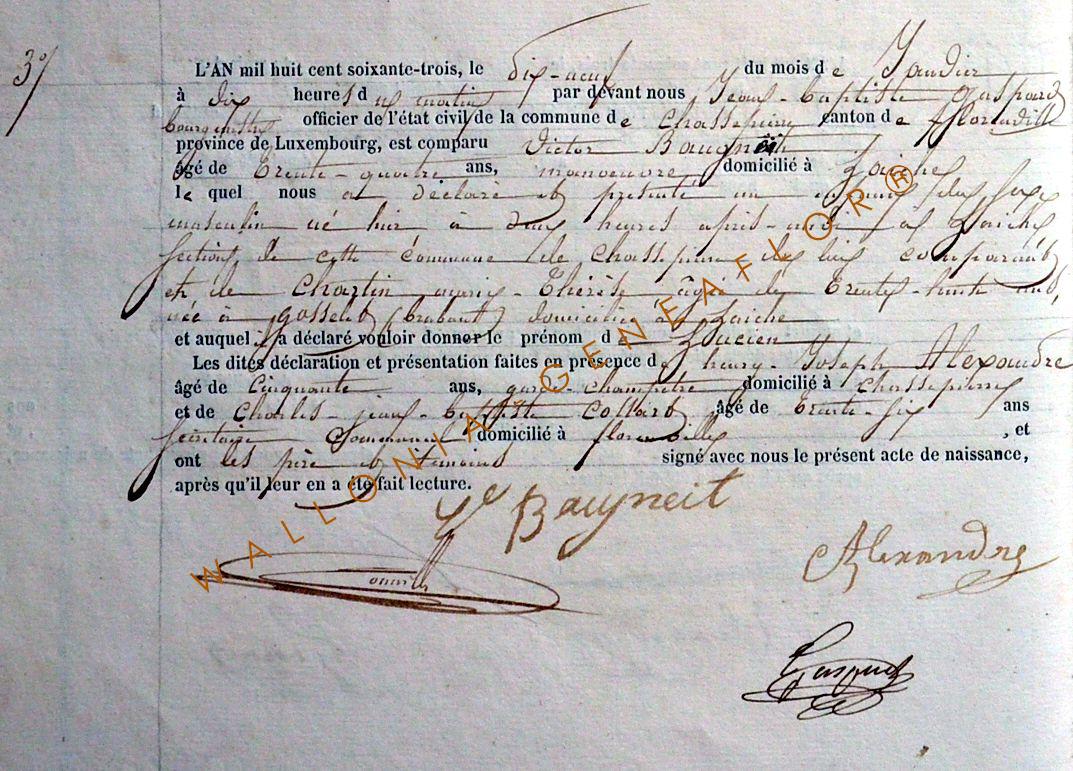 3°/
L'AN mil huit cent soixante-trois, le dix-neuf du mois de Janvier
à dix heures du matin par devant nous Jean-Baptiste Gaspard
bourgmestre officier de l'état civil de la commune de Chassepierre canton de Florenville
province de Luxembourg, est comparu Victor Baugneit
âgé de trente-quatre ans, manoeuvre domicilié à Laiche
le quel nous a déclaré et présenté un enfant du sexe
masculin né hier à deux heures après-midi à Laiche
section de cette commune de Chassepierre de lui comparant
et de Chartin marie-Thérèse âgée de trente-huit ans,
née à Gosselies (brabant) domiciliée à Laiche
et auquel il a déclaré vouloir donner le prénom de Lucien
Les dites déclaration et présentation faites en présence de henry-Joseph Alexandre
âgé de Cinquante ans, garde-champêtre domicilié à Chassepierre
et de Charles-jean-baptiste Collard âgé de trente-six ans
secrétaire Communal domicilié à florenville , et
ont les père et témoins signé avec nous le présent acte de naissance,
après qu'il leur en a été fait lecture.
Baugneit
Alexandre
Gaspard
WALLONIA-GENEAFLOR®